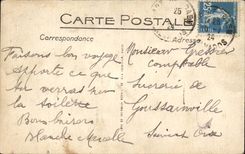 CARTE POSTALE
Correspondance
Adresse
Faisons bon voyage
apporte ce que
on verras sur
la toilette
Bons baisers
Blanche Marcelle
Monsieur
Comptable
Sucrerie de
Goussainville
Seine et Oise
25
24